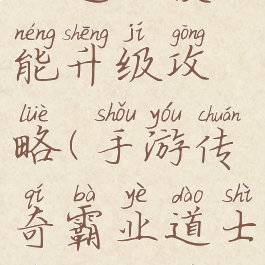 néng shēng jí gōng
能升级攻
lüè shǒu yóu chuán
略(手游传
qí bà yè dào shì
奇霸业道士